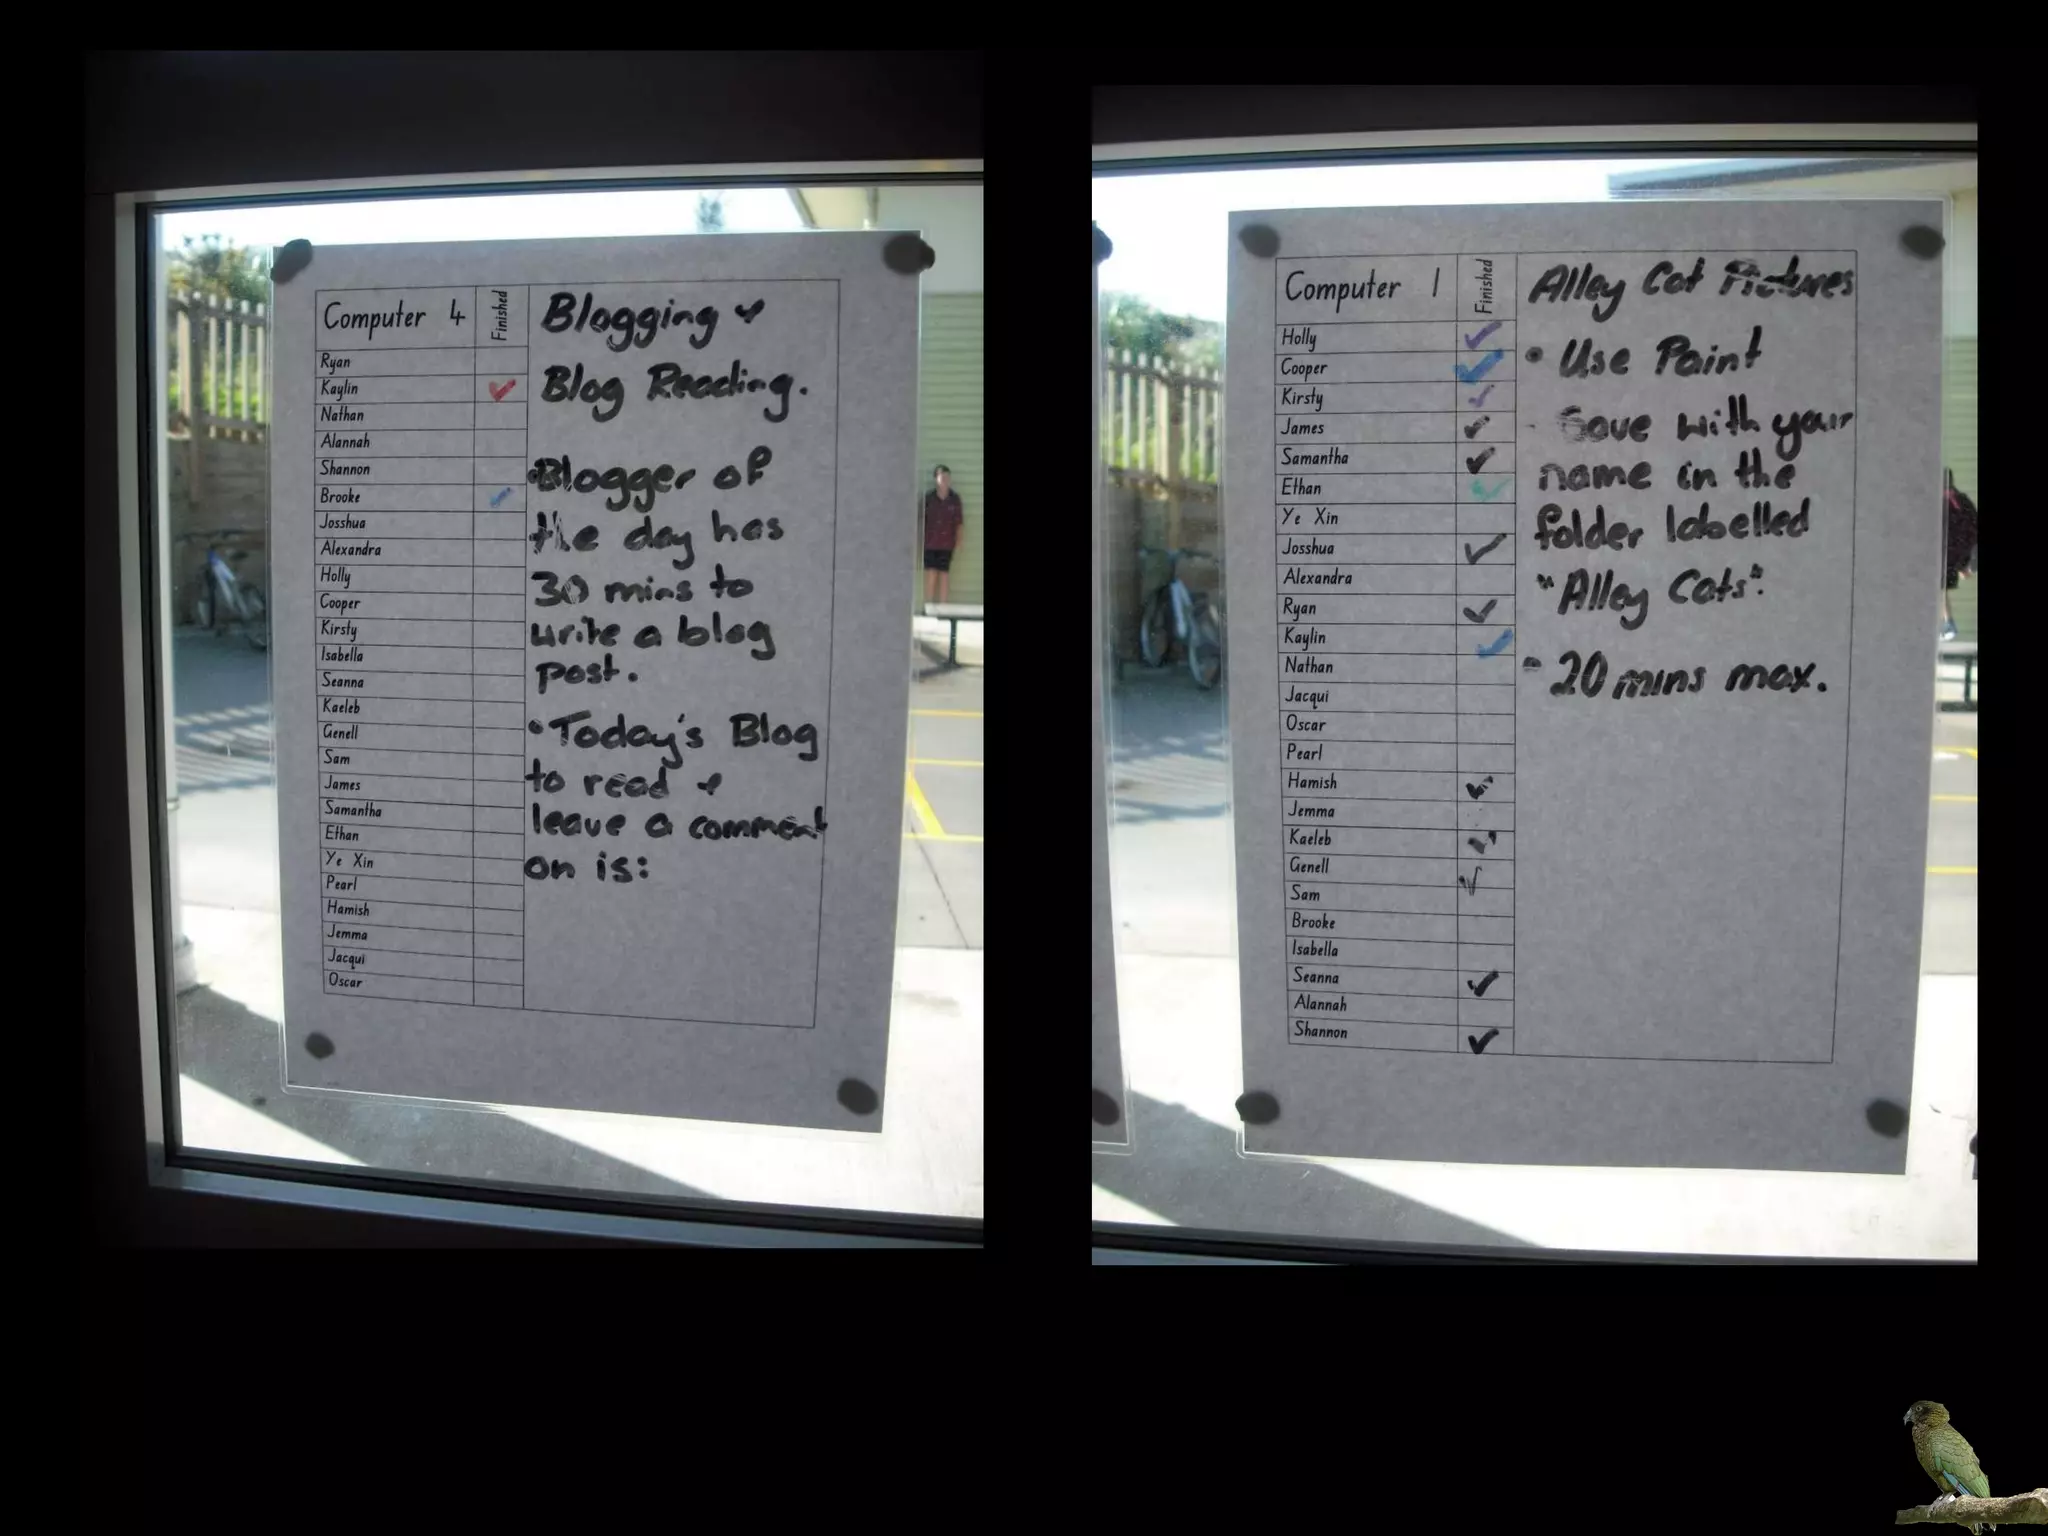 Computer 4 Finished
Ryan
Kaylin ✓
Nathan
Alannah
Shannon
Brooke ✓
Josshua
Alexandra
Holly
Cooper
Kirsty
Isabella
Seanna
Kaeleb
Genell
Sam
James
Samantha
Ethan
Ye Xin
Pearl
Hamish
Jemma
Jacqui
Oscar
Blogging +
Blog Reading.
•Blogger of
the day has
30 mins to
write a blog
post.
•Today's Blog
to read +
leave a comment
on is:
Computer 1 Finished
Holly ✓
Cooper ✓
Kirsty ✓
James ✓
Samantha ✓
Ethan ✓
Ye Xin
Josshua ✓
Alexandra
Ryan ✓
Kaylin ✓
Nathan
Jacqui
Oscar
Pearl
Hamish ✓
Jemma
Kaeleb ✓
Genell ✓
Sam
Brooke
Isabella
Seanna ✓
Alannah
Shannon ✓
Alley Cat Pictures
• Use Paint
• Save with your
name in the
folder labelled
"Alley Cats".
• 20 mins max.